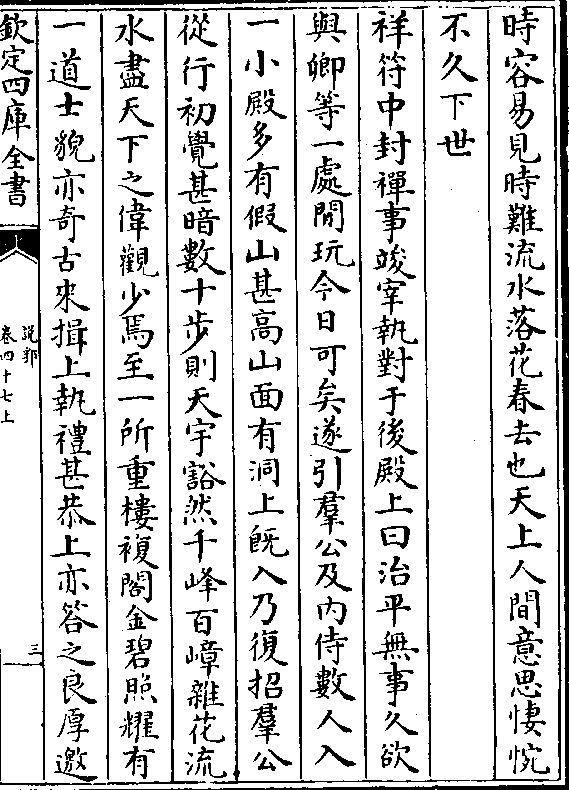 時容易見時難流水落花春去也天上人間意思悽惋
不久下世
祥符中封禪事竣宰執對于後殿上曰治平無事久欲
與卿等一處閒玩今日可矣遂引羣公及内侍數人入
一小殿多有假山甚高山面有洞上旣入乃復招羣公
從行初覺甚暗數十步則天宇豁然千峰百嶂雜花流
水盡天下之偉觀少焉至一所重樓複閣金碧照耀有
一道士貌亦奇古來揖上執禮甚恭上亦答之良厚邀
欽定四庫全書
説郛
卷四十七上
三